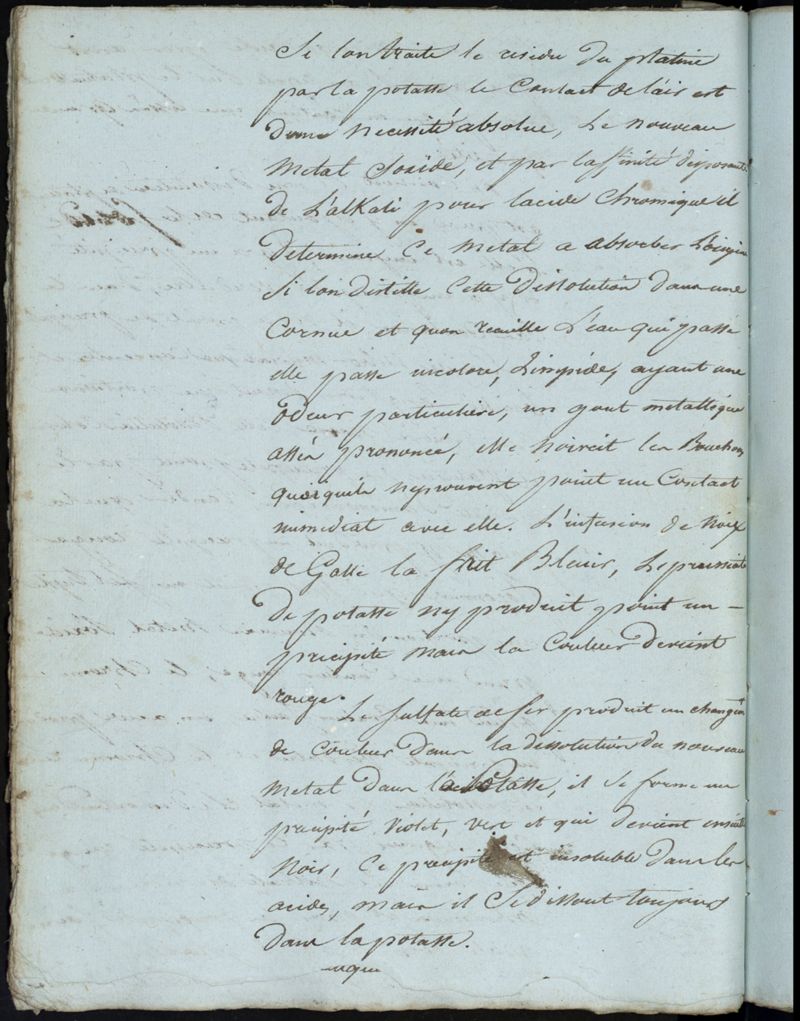 Si lon traite le residu du platine
par la potasse le Contact de lair est
dune necessité absolue, Le nouveau
metal Soxide, et par laffinité disposante
de L'alKali pour lacide Chromique il
determine Ce metal a absorber L'oxigene
Si lon distille Cette dissolution dans une
Cornue et quon receuille L'eau qui passe
elle passe incolore, Limpide, ayant une
odeur particuliere, un gout metallique
assés prononcé, elle noircit les Bouchons
quoiquils neprouvent point un Contact
immediat avec elle. L'infusion de noix
de Galle la fait Bleuir, Le prussiate
de potasse ny produit point un –
precipité mais la Couleur devient
rouge.
Le Sulfate de fer produit un changemt
de Couleur dans la dissolution du nouveau
metal dans la potasse, il se forme un
precipité violet, vert et qui devient ensuite
noir, Ce precipité est insoluble dans les
acides, mais il Se dissout toujours
dans la potasse.